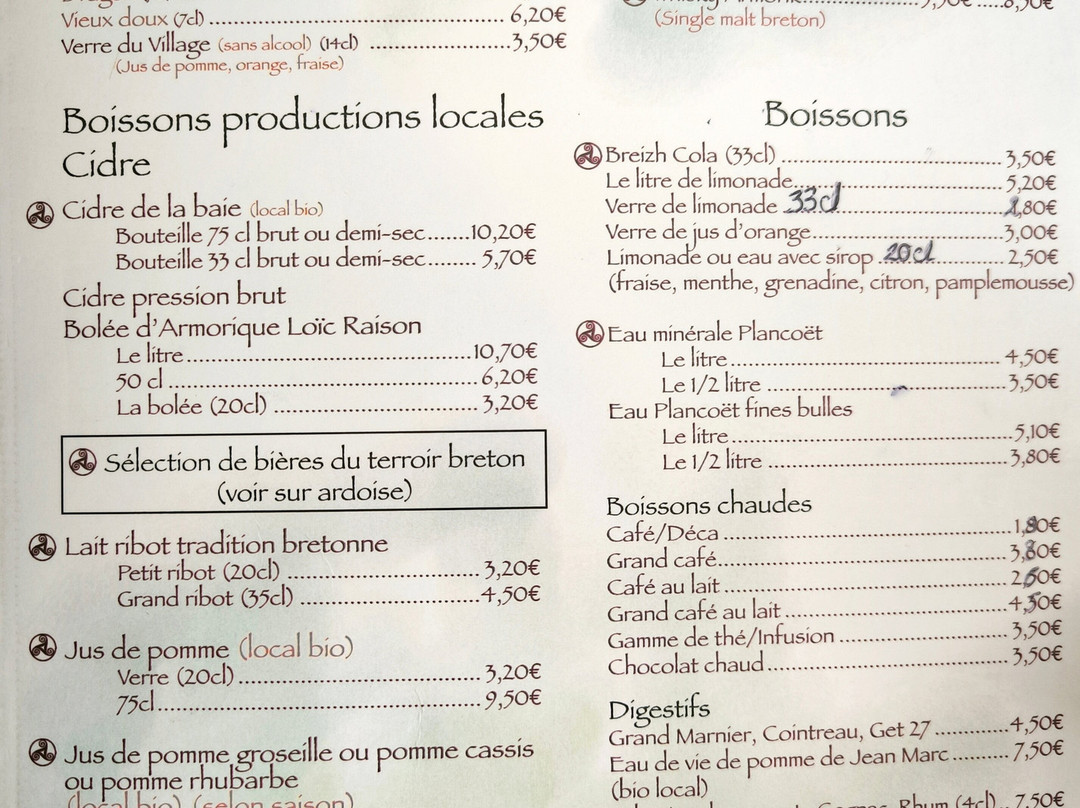 Vieux doux (7cl) ........ 6,20€
Verre du Village (sans alcool) (14cl) ........ 3,50€
(Jus de pomme, orange, fraise)
Boissons productions locales
Cidre
Cidre de la baie (local bio)
Bouteille 75 cl brut ou demi-sec ....... 10,20€
Bouteille 33 cl brut ou demi-sec ........ 5,70€
Cidre pression brut
Bolée d'Armorique Loïc Raison
Le litre ........ 10,70€
50 cl ........ 6,20€
La bolée (20cl) ........ 3,20€
Sélection de bières du terroir breton
(voir sur ardoise)
Lait ribot tradition bretonne
Petit ribot (20cl) ........ 3,20€
Grand ribot (35cl) ........ 4,50€
Jus de pomme (local bio)
Verre (20cl) ........ 3,20€
75cl ........ 9,50€
Jus de pomme groseille ou pomme cassis
ou pomme rhubarbe
(local bio) (selon saison)
(Single malt breton)
Boissons
Breizh Cola (33cl) ........ 3,50€
Le litre de limonade ........ 5,20€
Verre de limonade 33cl ........ ,80€
Verre de jus d'orange ........ 3,00€
Limonade ou eau avec sirop 20cl ........ 2,50€
(fraise, menthe, grenadine, citron, pamplemousse)
Eau minérale Plancoët
Le litre ........ 4,50€
Le 1/2 litre ........ 3,50€
Eau Plancoët fines bulles
Le litre ........ 5,10€
Le 1/2 litre ........ 3,80€
Boissons chaudes
Café/Déca ........ 1,80€
Grand café ........ 3,80€
Café au lait ........ 2,60€
Grand café au lait ........ 4,30€
Gamme de thé/Infusion ........ 3,50€
Chocolat chaud ........ 3,50€
Digestifs
Grand Marnier, Cointreau, Get 27 ........ 4,50€
Eau de vie de pomme de Jean Marc ........ 7,50€
(bio local)
Rhum (4cl) 7,50€